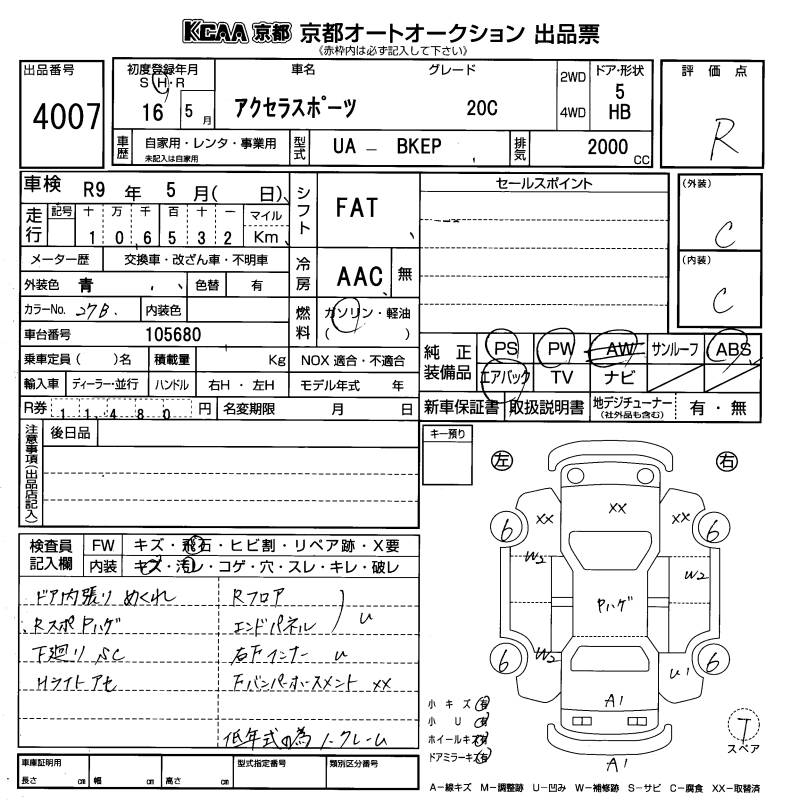 KCAA 京都 京都オートオークション 出品票
《赤枠内は必ず記入して下さい》
出品番号
4007
初度登録年月
S・H・R
16 5 月
車名
アクセラスポーツ
グレード
20C
2WD
4WD
ドア・形状
5
HB
評価点
R
車歴
自家用・レンタ・事業用
未記入は自家用
型式
UA － BKEP
排気
2000 CC
車検 R9 年 5 月( 日)
シフト
FAT
セールスポイント
(外装)
C
走行
記号 十 万 千 百 十 一 マイル
1 0 6 5 3 2 Km
メーター歴 交換車・改ざん車・不明車
冷房
AAC 無
(内装)
C
外装色 青 色替 有
カラーNo. 27B. 内装色
燃料
ガソリン・軽油
( )
車台番号 105680
純正装備品
PS PW AW サンルーフ ABS
エアバック TV ナビ
乗車定員( )名 積載量 Kg NOX 適合・不適合
輸入車 ディーラー・並行 ハンドル 右H・左H モデル年式 年
R券 11480 円 名変期限 月 日
新車保証書 取扱説明書 地デジチューナー (社外品も含む) 有・無
注意事項(出品店記入)
後日品
キー預り
左
右
検査員記入欄
FW キズ・飛石・ヒビ割・リペア跡・X要
内装 キズ・汚レ・コゲ・穴・スレ・キレ・破レ
ドア内張り めくれ
Rフロア
RスポPハゲ
エンドパネル U
下廻り SC
右Fインナー U
Hライトアセ
Fバンパーホースメント XX
低年式の為 ノークレーム
XX
XX
XX
6
6
W2
W2
Pハゲ
6
6
W2
U1
A1
A1
小キズ(有)
小 U(有)
ホイールキズ(有)
ドアミラーキズ(有)
T
スペア
車庫証明用
長さ cm 幅 cm 高さ cm
型式指定番号
類別区分番号
A－線キズ M－調整跡 U－凹み W－補修跡 S－サビ C－腐食 XX－取替済